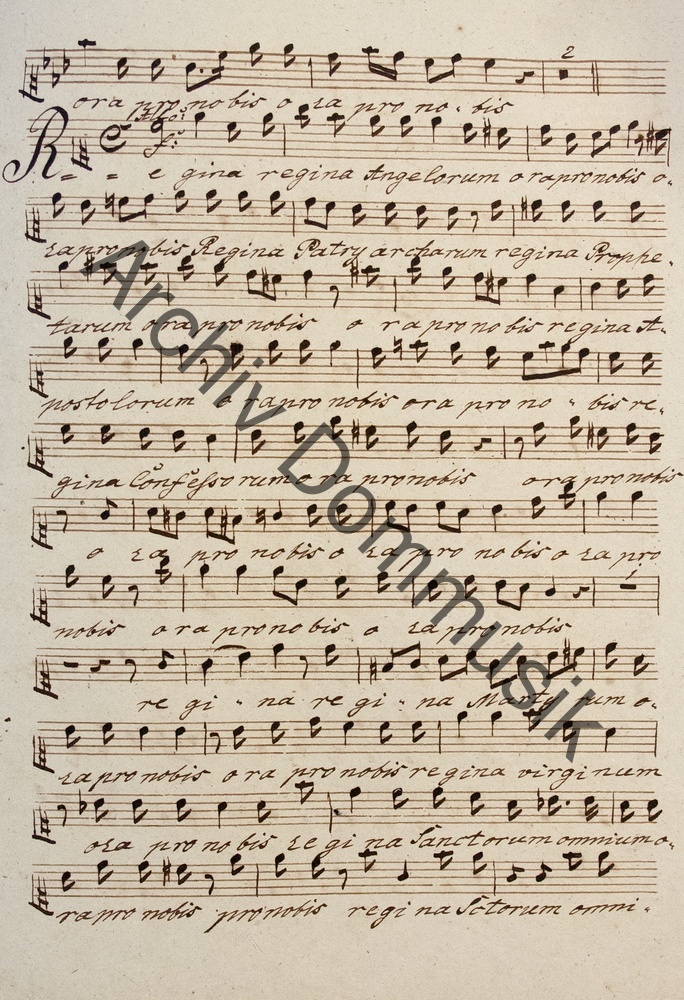 2
ora pro nobis o ra pro no - bis
All:o
f:
R = = e gina regina Angelorum orapronobis o-
rapronobis Regina Patryarcharum regina Prophe-
tarum orapronobis o rapronobis regina A-
postolorum o rapro nobis ora pro no - bis re-
gina Confessorum ora pronobis ora pronobis
o ra pro nobis o ra pro nobis o ra pro
nobis ora pronobis o ra pro nobis
re gi - na re gi - na Marty rum o-
rapro nobis ora pro nobis regina virginum
ora pro nobis regina Sanctorum omnium o-
rapro nobis pronobis regina Sctorum omni-
Archiv Dommusik